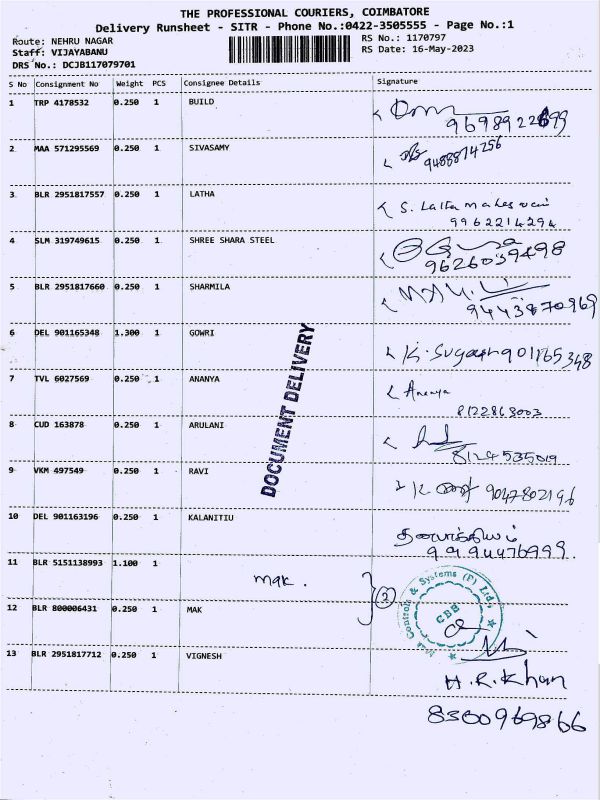 THE PROFESSIONAL COURIERS, COIMBATORE
Delivery Runsheet - SITR - Phone No.:0422-3505555 - Page No.:1
Route: NEHRU NAGAR
Staff: VIJAYABANU
DRS No.: DCJB117079701
RS No.: 1170797
RS Date: 16-May-2023
S No Consignment No Weight PCS Consignee Details Signature
1 TRP 4178532 0.250 1 BUILD
2 MAA 571295569 0.250 1 SIVASAMY
9488874256
3 BLR 2951817557 0.250 1 LATHA
S. Lalta maheswari
9962214294
4 SLM 319749615 0.250 1 SHREE SHARA STEEL
9626039498
5 BLR 2951817660 0.250 1 SHARMILA
9443870969
6 DEL 901165348 1.300 1 GOWRI
K. 901165348
7 TVL 6027569 0.250 1 ANANYA
Ananya
8122863003
8 CUD 163878 0.250 1 ARULANI
8124535019
9 VKM 497549 0.250 1 RAVI
9047802196
10 DEL 901163196 0.250 1 KALANITIU
தனபாக்கியம்
9994476999.
11 BLR 5151138993 1.100 1 mak. 2
12 BLR 800006431 0.250 1 MAK
Mak Controls & Systems (P) Ltd.,
CBB
13 BLR 2951817712 0.250 1 VIGNESH
H.R.Khan
8300969866
DOCUMENT DELIVERY